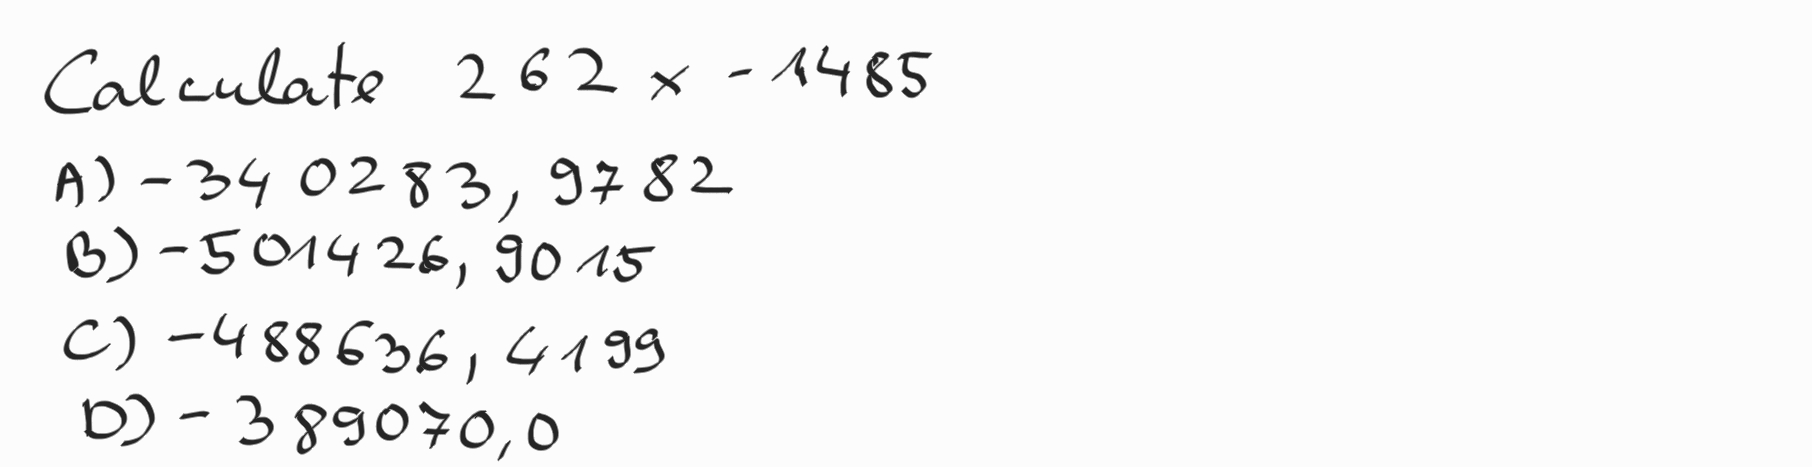 Calculate 262 x -1485
A) -340283,9782
B) -501426,9015
C) -488636,4199
D) -389070,0